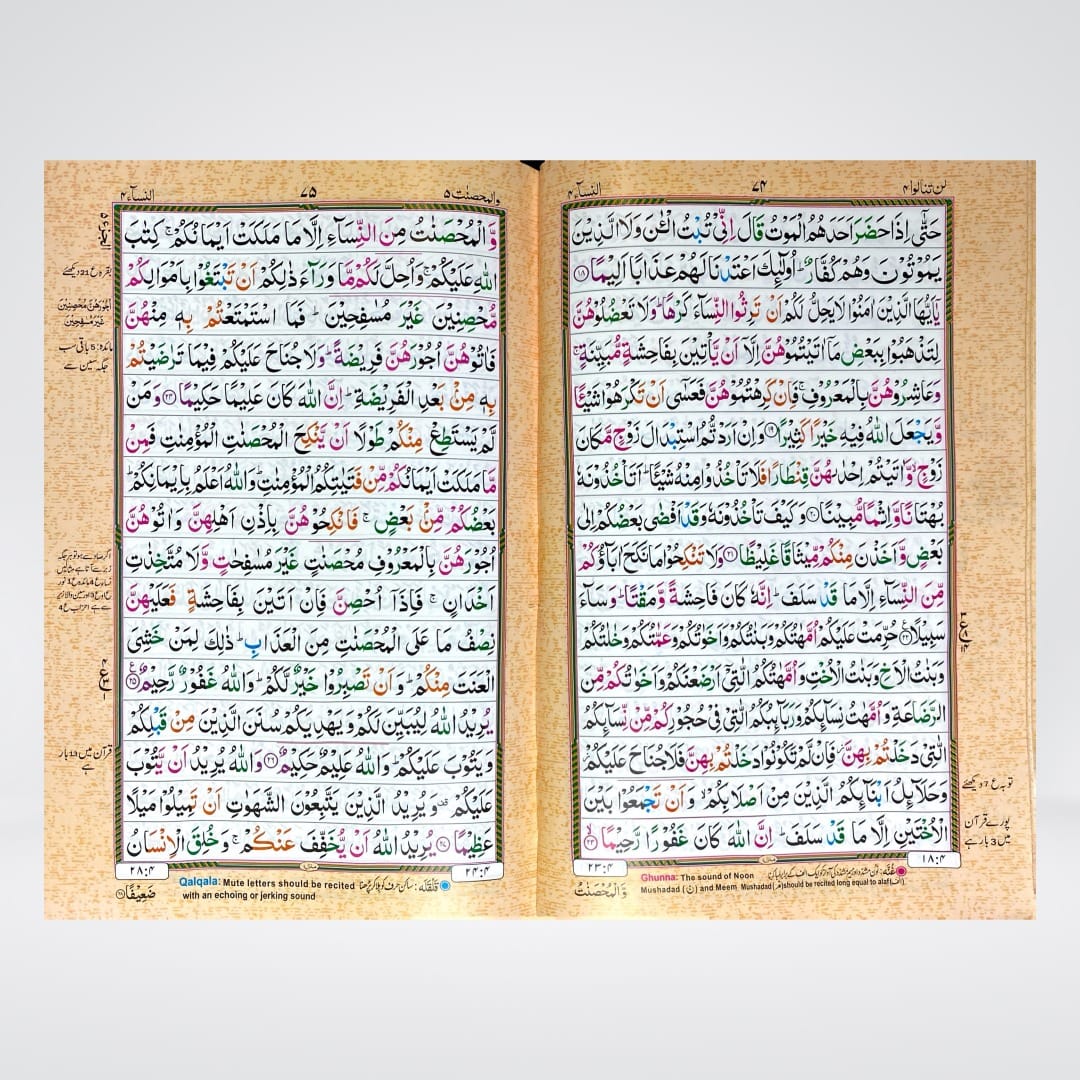 لن تنالوا ۴
۷۴
النسآء ۴
حَتّٰۤی اِذَا حَضَرَ اَحَدَهُمُ الْمَوْتُ قَالَ اِنِّیْ تُبْتُ الْـٰٔنَ وَلَا الَّذِیْنَ
یَمُوْتُوْنَ وَهُمْ كُفَّارٌ ؕ اُولٰٓىِٕكَ اَعْتَدْنَا لَهُمْ عَذَابًا اَلِیْمًا ۝۱۸
یٰۤاَیُّهَا الَّذِیْنَ اٰمَنُوْا لَا یَحِلُّ لَكُمْ اَنْ تَرِثُوا النِّسَآءَ كَرْهًا ؕ وَلَا تَعْضُلُوْهُنَّ
لِتَذْهَبُوْا بِبَعْضِ مَاۤ اٰتَیْتُمُوْهُنَّ اِلَّاۤ اَنْ یَّاْتِیْنَ بِفَاحِشَةٍ مُّبَیِّنَةٍ ۚ
وَعَاشِرُوْهُنَّ بِالْمَعْرُوْفِ ۚ فَاِنْ كَرِهْتُمُوْهُنَّ فَعَسٰۤی اَنْ تَكْرَهُوْا شَیْـًٔا
وَّیَجْعَلَ اللّٰهُ فِیْهِ خَیْرًا كَثِیْرًا ۝۱۹ وَاِنْ اَرَدْتُّمُ اسْتِبْدَالَ زَوْجٍ مَّكَانَ
زَوْجٍ ۙ وَّاٰتَیْتُمْ اِحْدٰىهُنَّ قِنْطَارًا فَلَا تَاْخُذُوْا مِنْهُ شَیْـًٔا ؕ اَتَاْخُذُوْنَهٗ
بُهْتَانًا وَّاِثْمًا مُّبِیْنًا ۝۲۰ وَكَیْفَ تَاْخُذُوْنَهٗ وَقَدْ اَفْضٰی بَعْضُكُمْ اِلٰی
بَعْضٍ وَّاَخَذْنَ مِنْكُمْ مِّیْثَاقًا غَلِیْظًا ۝۲۱ وَلَا تَنْكِحُوْا مَا نَكَحَ اٰبَآؤُكُمْ
مِّنَ النِّسَآءِ اِلَّا مَا قَدْ سَلَفَ ؕ اِنَّهٗ كَانَ فَاحِشَةً وَّمَقْتًا ؕ وَسَآءَ
سَبِیْلًا ۝۲۲ حُرِّمَتْ عَلَیْكُمْ اُمَّهٰتُكُمْ وَبَنٰتُكُمْ وَاَخَوٰتُكُمْ وَعَمّٰتُكُمْ وَخٰلٰتُكُمْ
وَبَنٰتُ الْاَخِ وَبَنٰتُ الْاُخْتِ وَاُمَّهٰتُكُمُ الّٰتِیْۤ اَرْضَعْنَكُمْ وَاَخَوٰتُكُمْ مِّنَ
الرَّضَاعَةِ وَاُمَّهٰتُ نِسَآىِٕكُمْ وَرَبَآىِٕبُكُمُ الّٰتِیْ فِیْ حُجُوْرِكُمْ مِّنْ نِّسَآىِٕكُمُ
الّٰتِیْ دَخَلْتُمْ بِهِنَّ ؗ فَاِنْ لَّمْ تَكُوْنُوْا دَخَلْتُمْ بِهِنَّ فَلَا جُنَاحَ عَلَیْكُمْ ؗ
وَحَلَآىِٕلُ اَبْنَآىِٕكُمُ الَّذِیْنَ مِنْ اَصْلَابِكُمْ ۙ وَاَنْ تَجْمَعُوْا بَیْنَ
الْاُخْتَیْنِ اِلَّا مَا قَدْ سَلَفَ ؕ اِنَّ اللّٰهَ كَانَ غَفُوْرًا رَّحِیْمًا ۝۲۳
توبہ ع 7 دیکھئے
پورے قرآن
میں 3 بار ہے
۱۸:۴
۲۳:۴
Ghunna: The sound of Noon
Mushadad (نّ) and Meem Mushadad (مّ) should be recited long equal to alaf (الف).
وَّالْمُحْصَنٰتُ
والمحصنٰت ۵
۷۵
النسآء ۴
وَّالْمُحْصَنٰتُ مِنَ النِّسَآءِ اِلَّا مَا مَلَكَتْ اَیْمَانُكُمْ ۚ كِتٰبَ
اللّٰهِ عَلَیْكُمْ ۚ وَاُحِلَّ لَكُمْ مَّا وَرَآءَ ذٰلِكُمْ اَنْ تَبْتَغُوْا بِاَمْوَالِكُمْ
مُّحْصِنِیْنَ غَیْرَ مُسٰفِحِیْنَ ؕ فَمَا اسْتَمْتَعْتُمْ بِهٖ مِنْهُنَّ
فَاٰتُوْهُنَّ اُجُوْرَهُنَّ فَرِیْضَةً ؕ وَلَا جُنَاحَ عَلَیْكُمْ فِیْمَا تَرٰضَیْتُمْ
بِهٖ مِنْۢ بَعْدِ الْفَرِیْضَةِ ؕ اِنَّ اللّٰهَ كَانَ عَلِیْمًا حَكِیْمًا ۝۲۴ وَمَنْ
لَّمْ یَسْتَطِعْ مِنْكُمْ طَوْلًا اَنْ یَّنْكِحَ الْمُحْصَنٰتِ الْمُؤْمِنٰتِ فَمِنْ
مَّا مَلَكَتْ اَیْمَانُكُمْ مِّنْ فَتَیٰتِكُمُ الْمُؤْمِنٰتِ ؕ وَاللّٰهُ اَعْلَمُ بِاِیْمَانِكُمْ ؕ
بَعْضُكُمْ مِّنْۢ بَعْضٍ ۚ فَانْكِحُوْهُنَّ بِاِذْنِ اَهْلِهِنَّ وَاٰتُوْهُنَّ
اُجُوْرَهُنَّ بِالْمَعْرُوْفِ مُحْصَنٰتٍ غَیْرَ مُسٰفِحٰتٍ وَّلَا مُتَّخِذٰتِ
اَخْدَانٍ ۚ فَاِذَاۤ اُحْصِنَّ فَاِنْ اَتَیْنَ بِفَاحِشَةٍ فَعَلَیْهِنَّ
نِصْفُ مَا عَلَی الْمُحْصَنٰتِ مِنَ الْعَذَابِ ؕ ذٰلِكَ لِمَنْ خَشِیَ
الْعَنَتَ مِنْكُمْ ؕ وَاَنْ تَصْبِرُوْا خَیْرٌ لَّكُمْ ؕ وَاللّٰهُ غَفُوْرٌ رَّحِیْمٌ ۝۲۵
یُرِیْدُ اللّٰهُ لِیُبَیِّنَ لَكُمْ وَیَهْدِیَكُمْ سُنَنَ الَّذِیْنَ مِنْ قَبْلِكُمْ
وَیَتُوْبَ عَلَیْكُمْ ؕ وَاللّٰهُ عَلِیْمٌ حَكِیْمٌ ۝۲۶ وَاللّٰهُ یُرِیْدُ اَنْ یَّتُوْبَ
عَلَیْكُمْ ۫ وَیُرِیْدُ الَّذِیْنَ یَتَّبِعُوْنَ الشَّهَوٰتِ اَنْ تَمِیْلُوْا مَیْلًا
عَظِیْمًا ۝۲۷ یُرِیْدُ اللّٰهُ اَنْ یُّخَفِّفَ عَنْكُمْ ۚ وَخُلِقَ الْاِنْسَانُ
ضَعِیْفًا ۝۲۸
بقرہ ع 21 دیکھئے
اُجُوْرَهُنَّ مُحْصِنِیْنَ
غَیْرَ مُسٰفِحِیْنَ
مائدہ: 5 باقی سب
جگہ سین سے
قرآن میں 13 بار
ہے
۲۴:۴
۲۸:۴
Qalqala: Mute letters should be recited
with an echoing or jerking sound
قلقلہ: ساکن حرف کو ہلا کر پڑھنا